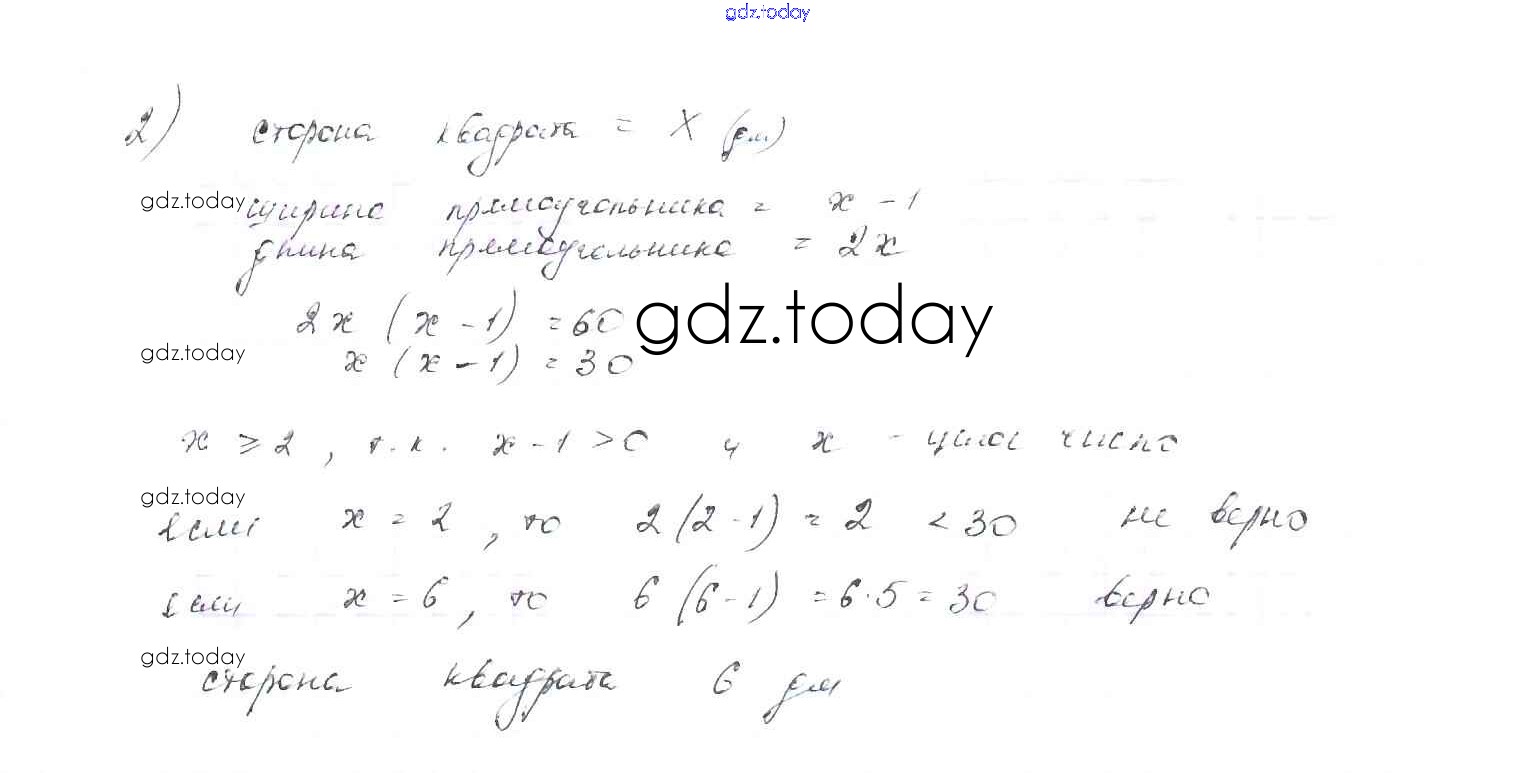 gdz.today
2) сторона квадрата = X (дм)
gdz.today
ширина прямоугольника = x - 1
длина прямоугольника = 2x
2x (x - 1) = 60
gdz.today
gdz.today
x (x - 1) = 30
x ≥ 2, т.к. x - 1 > 0 и x - целое число
gdz.today
если x = 2, то 2 (2 - 1) = 2 < 30 не верно
если x = 6, то 6 (6 - 1) = 6 · 5 = 30 верно
gdz.today
сторона квадрата 6 дм